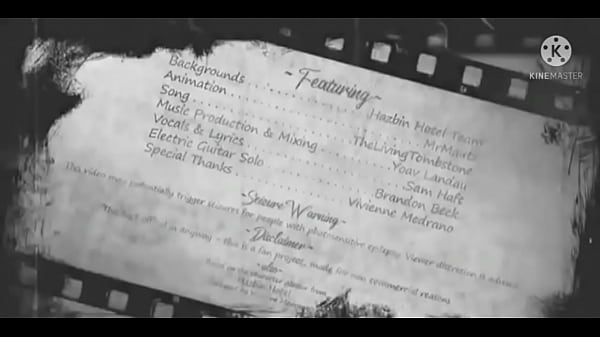 KINEMASTER
~Featuring~
Backgrounds . . . . . . . . . . . . Hazbin Hotel Team
Animation . . . . . . . . . . . . MrMautz
Song . . . . . . . . . . . . TheLivingTombstone
Music Production & Mixing . . . . . . . . . . . . Yoav Landau
Vocals & Lyrics . . . . . . . . . . . . Sam Haft
Electric Guitar Solo . . . . . . . . . . . . Brandon Beck
Special Thanks . . . . . . . . . . . . Vivienne Medrano
~Seizure Warning~
This video may potentially trigger seizures for people with photosensitive epilepsy. Viewer discretion is advised
~Disclaimer~
This is not official in anyway - this is a fan project, made for non commercial reasons
Based on the character from
Hazbin Hotel